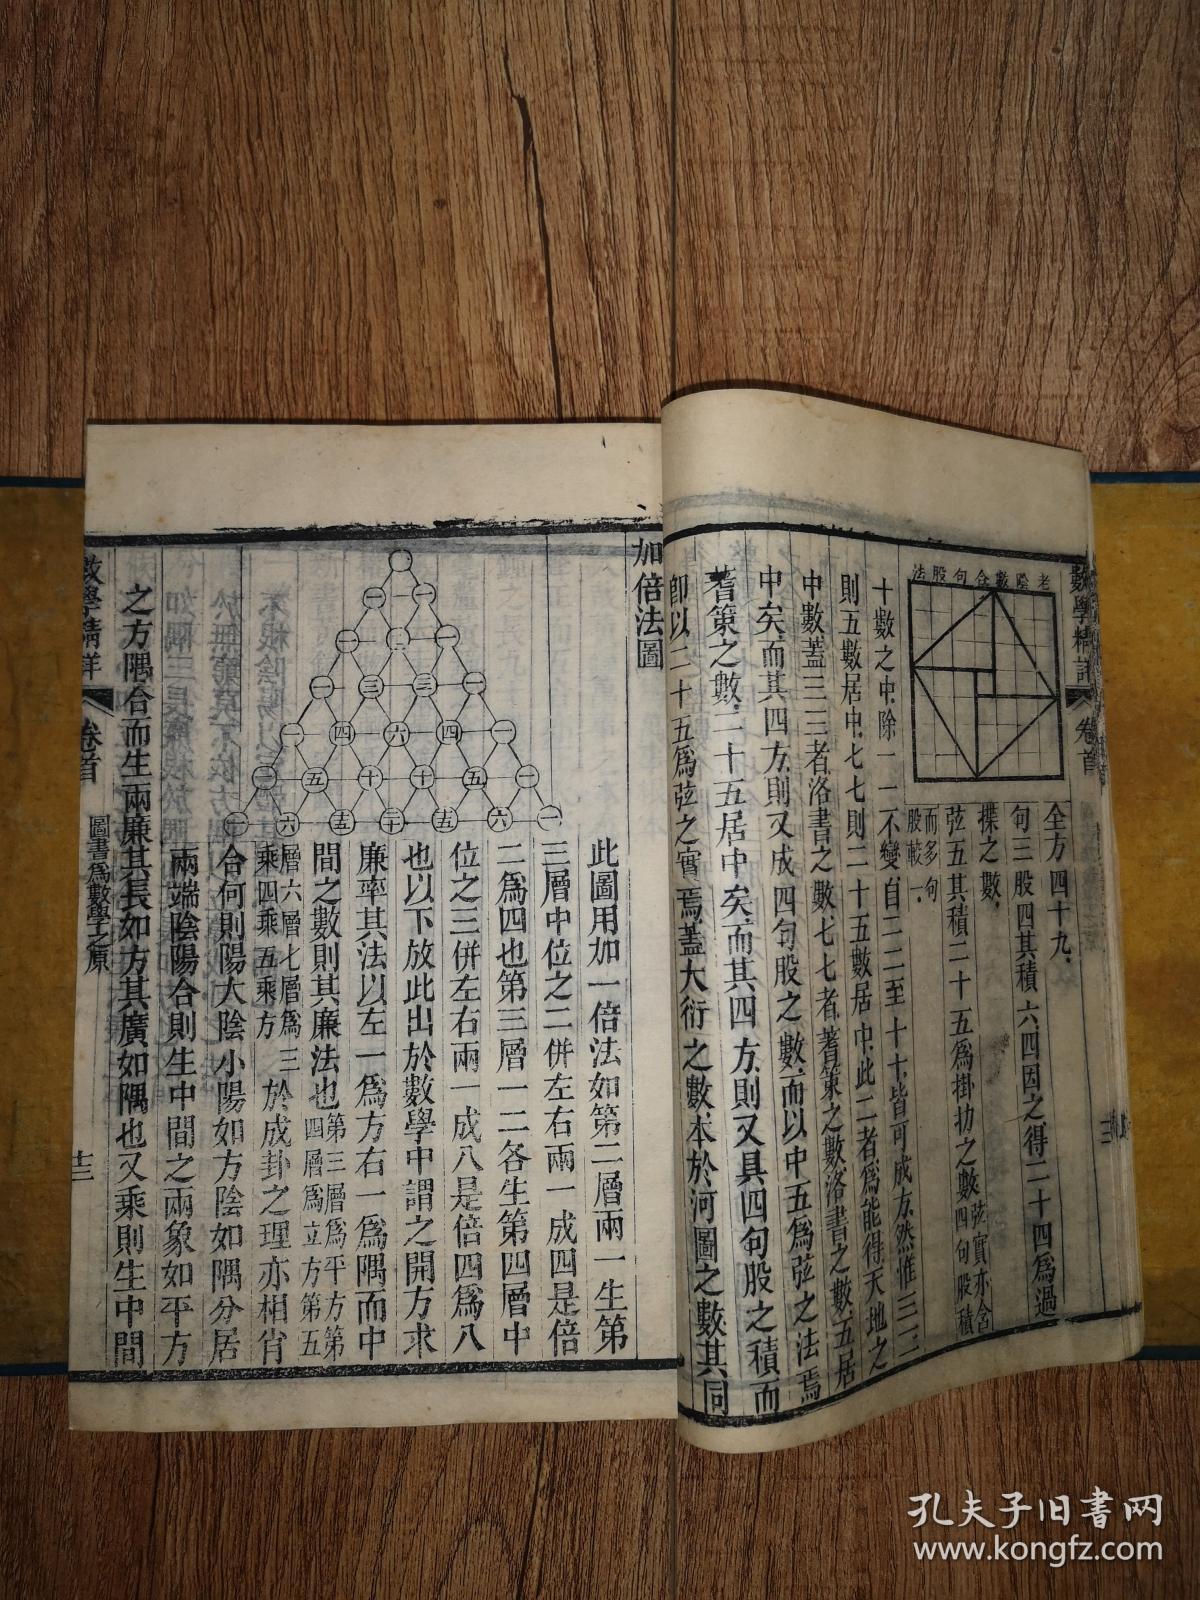 數學精詳
卷首
老陰數合句股法
全方四十九
句三股四其積六四因之得二十四爲過
揲之數
弦五其積二十五爲掛扐之數弦實亦含四句股積
而多一句股較一
十數之中除一二不變自二二至十十皆可成方然惟三三
則五數居中七七則二十五數居中此二者爲能得天地之
中數蓋三三者洛書之數七七者蓍策之數洛書之數五居
中矣而其四方則又成四句股之數而以中五爲弦之法焉
蓍策之數二十五居中矣而其四方則又具四句股之積而
卽以二十五爲弦之實焉蓋大衍之數本於河圖之數其同
加倍法圖
一
一 二 一
一 三 三 一
一 四 六 四 一
一 五 十 十 五 一
一 六 五 二十 五 六 一
此圖用加一倍法如第二層兩一生第
三層中位之二併左右兩一成四是倍
二爲四也第三層一二各生第四層中
位之三併左右兩一成八是倍四爲八
也以下放此出於數學中謂之開方求
廉率其法以左一爲方右一爲隅而中
間之數則其廉法也第三層爲平方第四層爲立方第五
層六層七層爲三乘四乘五乘方於成卦之理亦相肖
合何則陽大陰小陽如方陰如隅分居
兩端陰陽合則生中間之兩象如平方
之方隅合而生兩廉其長如方其廣如隅也又乘則生中間
數學精詳
卷首
圖書爲數學之原
十三
孔夫子旧书网
www.kongfz.com